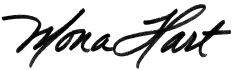 Mona Hart